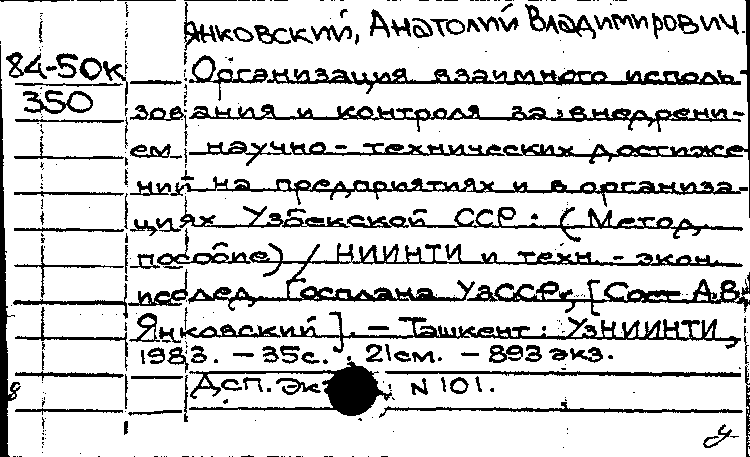 Янковский, Анатолий Владимирович.
84-50к Организация взаимного исполь-
350 зования и контроля за внедрени-
ем научно-технических достиже-
ний на предприятиях и в организа-
циях Узбекской ССР: (Метод.
пособие) / НИИНТИ и техн.-экон.
исслед. Госплана УзССР; [Сост. А.В.
Янковский]. — Ташкент: УзНИИНТИ,
1983. — 35с.; 21см. — 893 экз.
Дсп. Экз. N 101.
8